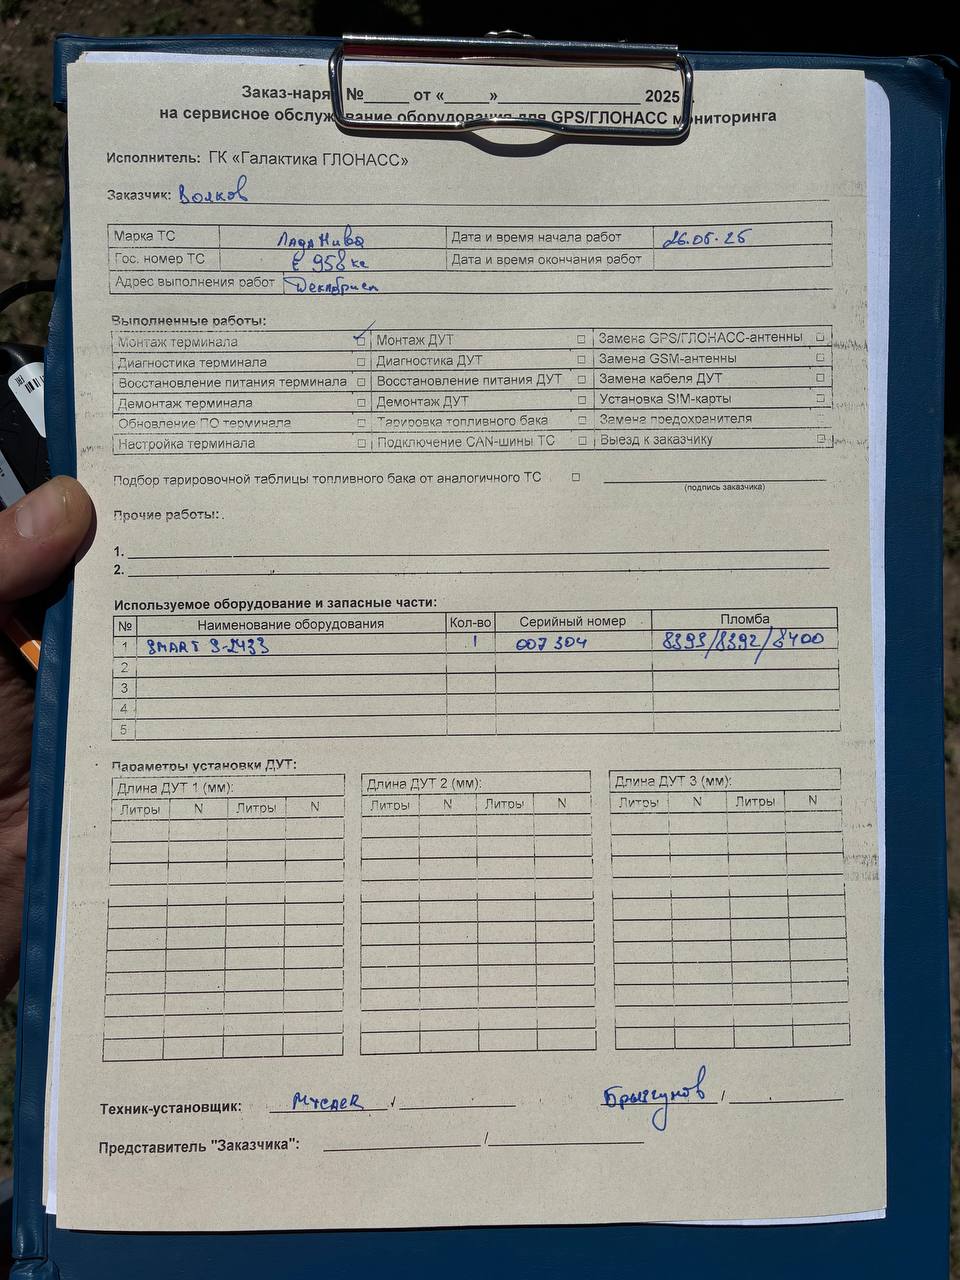 Заказ-наря № от « » 2025
на сервисное обслуживание оборудования для GPS/ГЛОНАСС мониторинга
Исполнитель: ГК «Галактика ГЛОНАСС»
Заказчик: Волков
Марка ТС Лада Нива Дата и время начала работ 26.05.25
Гос. номер ТС Е 958 ке Дата и время окончания работ
Адрес выполнения работ
Выполненные работы:
Монтаж терминала ☑ Монтаж ДУТ ☐ Замена GPS/ГЛОНАСС-антенны ☐
Диагностика терминала ☐ Диагностика ДУТ ☐ Замена GSM-антенны ☐
Восстановление питания терминала ☐ Восстановление питания ДУТ ☐ Замена кабеля ДУТ ☐
Демонтаж терминала ☐ Демонтаж ДУТ ☐ Установка SIM-карты ☐
Обновление ПО терминала ☐ Тарировка топливного бака ☐ Замена предохранителя ☐
Настройка терминала ☐ Подключение CAN-шины ТС ☐ Выезд к заказчику ☐
Подбор тарировочной таблицы топливного бака от аналогичного ТС ☐
(подпись заказчика)
Прочие работы:
1.
2.
Используемое оборудование и запасные части:
№ Наименование оборудования Кол-во Серийный номер Пломба
1 SMART S-2433 1 007304 8393/8392/8400
2
3
4
5
Параметры установки ДУТ:
Длина ДУТ 1 (мм): Длина ДУТ 2 (мм): Длина ДУТ 3 (мм):
Литры N Литры N Литры N Литры N Литры N Литры N
Техник-установщик: / Брызгунов /
Представитель "Заказчика": /